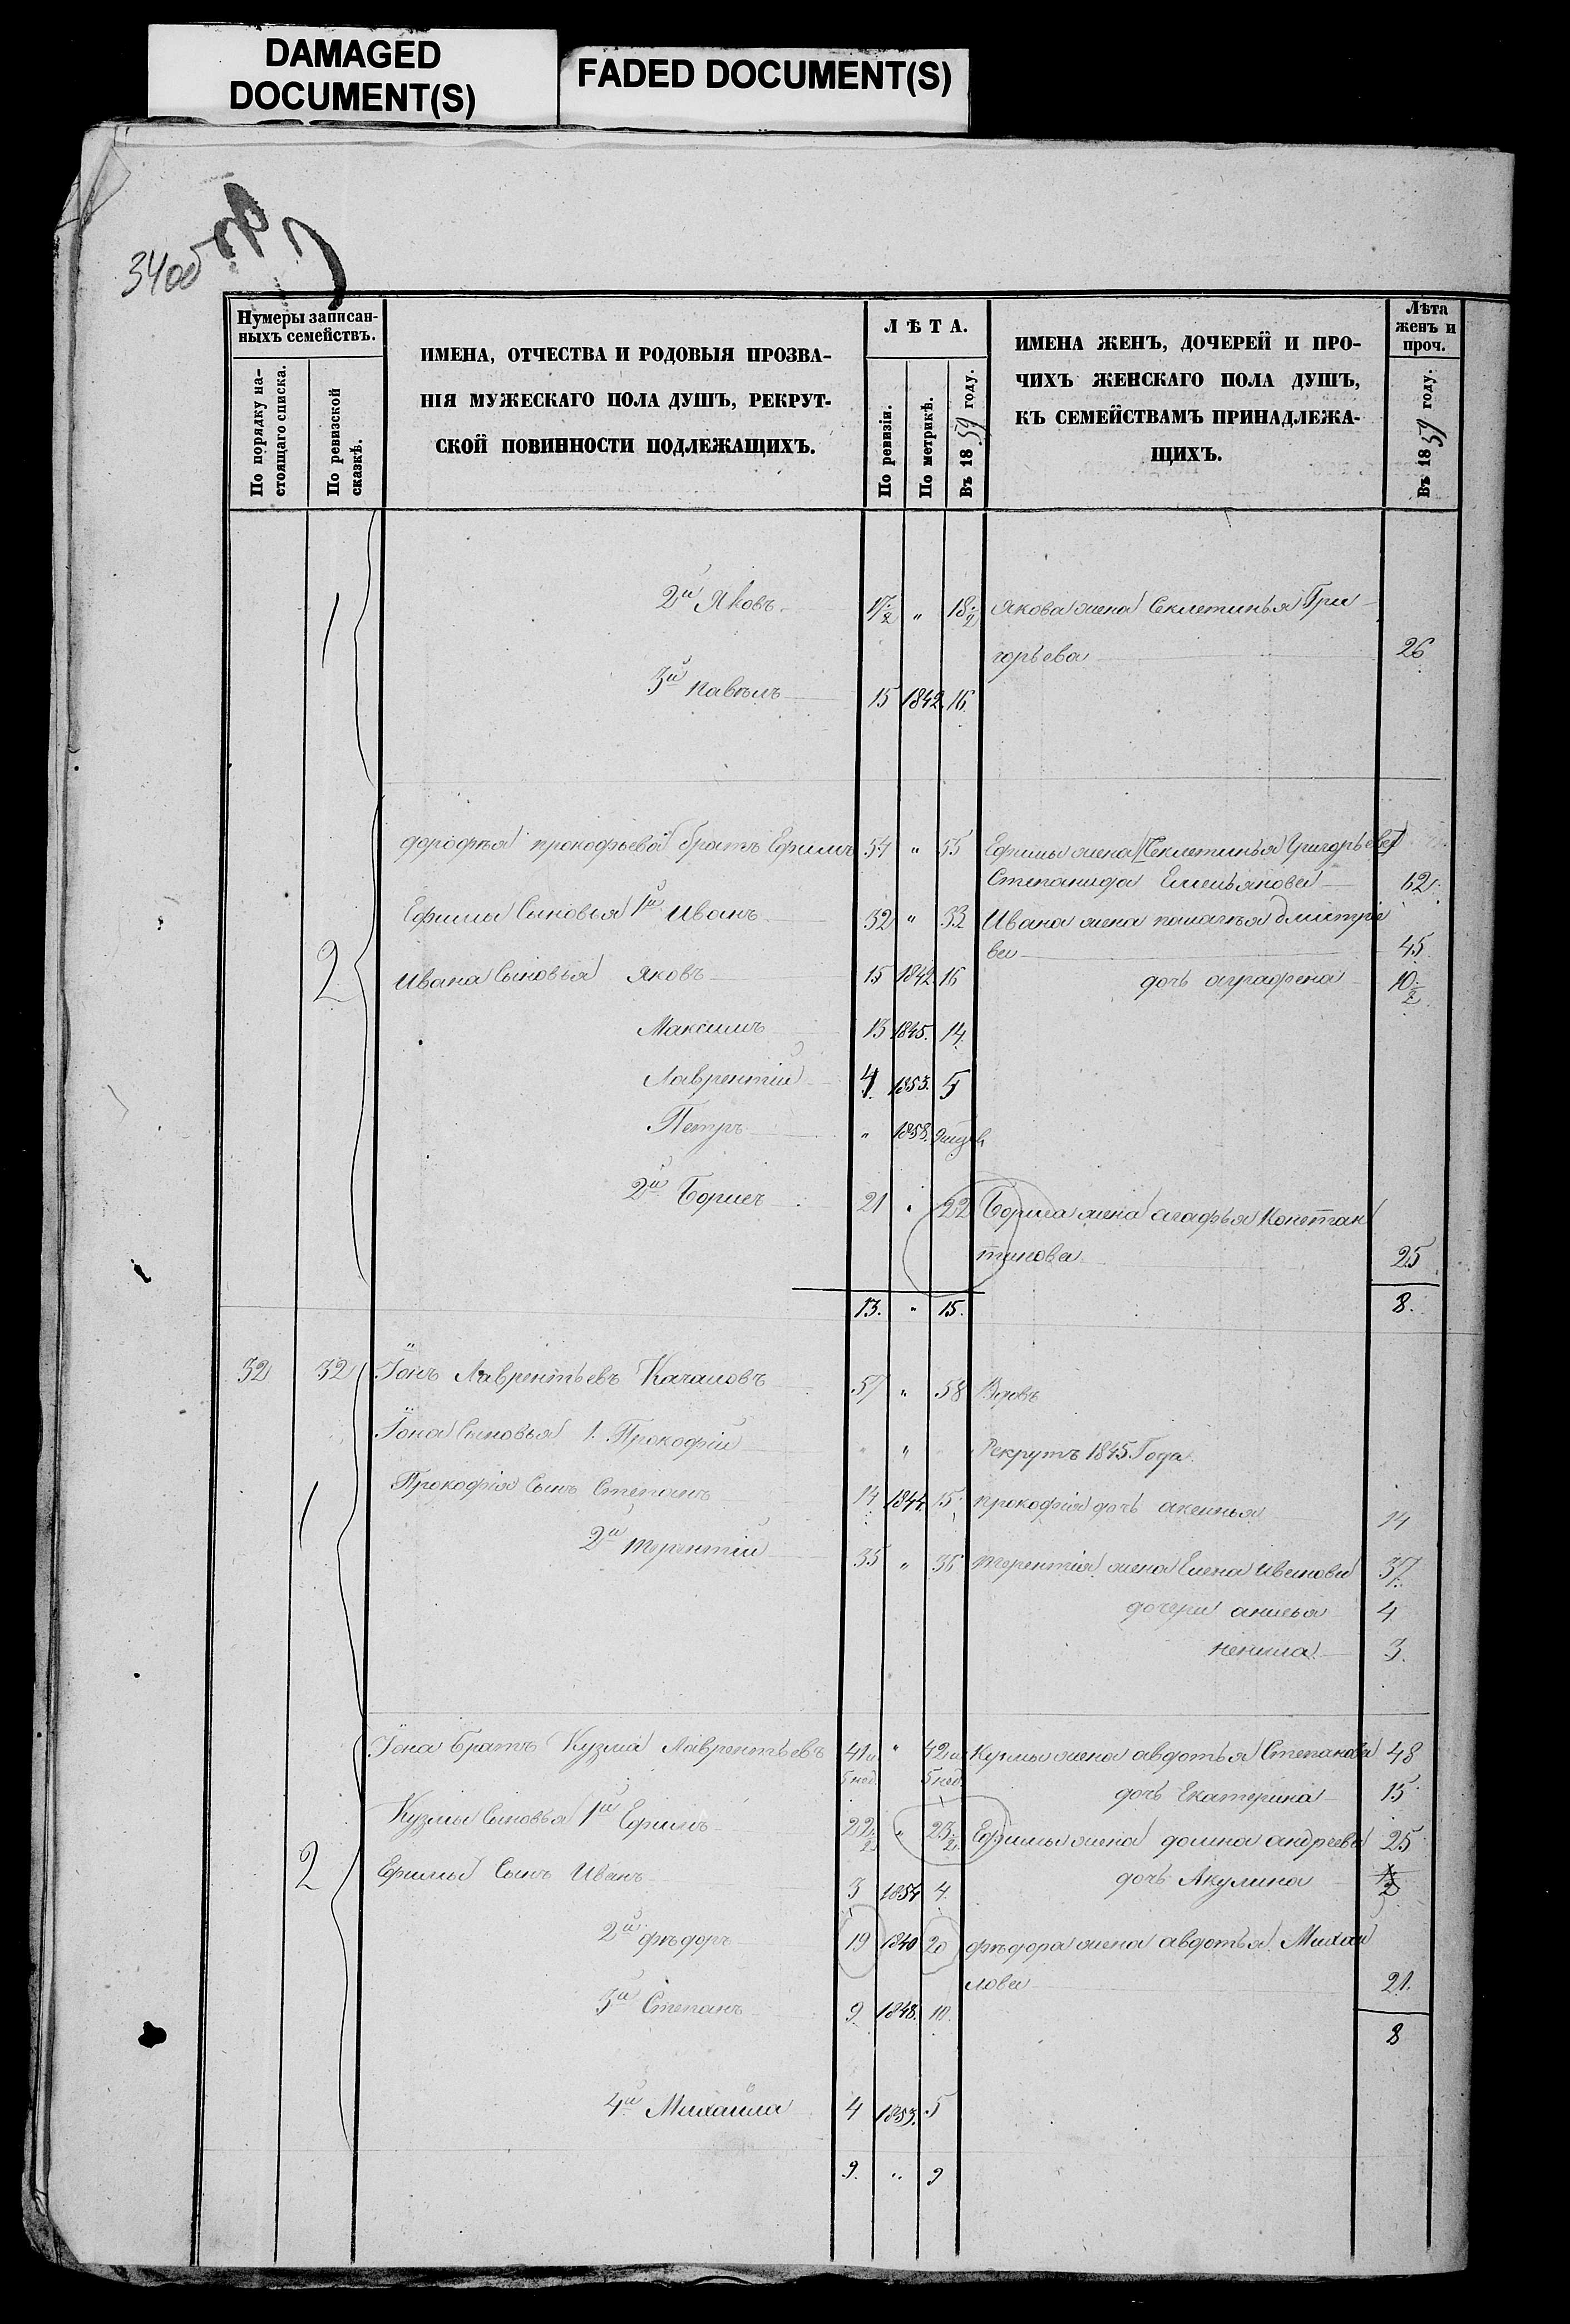 DAMAGED
DOCUMENT(S)
FADED DOCUMENT(S)
34об
Нумеры записан-
ныхъ семействъ.
По порядку на-
стоящаго списка.
По ревизской
сказкѣ.
ИМЕНА, ОТЧЕСТВА И РОДОВЫЯ ПРОЗВА-
НІЯ МУЖЕСКАГО ПОЛА ДУШЪ, РЕКРУТ-
СКОЙ ПОВИННОСТИ ПОДЛЕЖАЩИХЪ.
ЛѢТА.
По ревизіи.
По метрикѣ.
Въ 1859 году.
ИМЕНА ЖЕНЪ, ДОЧЕРЕЙ И ПРО-
ЧИХЪ ЖЕНСКАГО ПОЛА ДУШЪ,
КЪ СЕМЕЙСТВАМЪ ПРИНАДЛЕЖА-
ЩИХЪ.
Лѣта
женъ и
проч.
Въ 1859 году.
1 2й Яковъ 17½ " 18½ Якова жена Секлетинья Гри
горьева 26
3й павелъ 15 1842. 16.
дорофея прокофьева братъ Ефимъ 54 " 55 Ефима жена Секлетинья Григорьева
Степанида Емельянова 62
2 Ефима Сыновья 1й Иванъ 32 " 33 Ивана жена пелагея дмитріе
ва 45.
Ивана Сыновья Яковъ 15 1842. 16 дочь аграфена 10½
Максимъ 13 1845. 14.
Лаврентій 4 1853. 5
Петръ " 1858.
2й Борисъ 21 " 22 Бориса жена агафья Констан
тинова 25
13. " 15. 8.
32 32 Іонъ Лаврентьевъ Качаловъ 57 " 58 Вдовъ
Іона Сыновья 1. Прокофій " Рекрутъ 1845 Года.
1 Прокофія Сынъ Степанъ 14 1844. 15. прокофія дочь аксинья 14
2й терентій 35 " 36 терентія жена Елена иванова 37.
дочери анисья 4
ненила 3.
Іона братъ Кузма Лаврентьевъ 41 и " 42 и Кузмы жена авдотья Степанова 48
5 нед. 5 нед. дочь Екатерина 15
Кузмы Сыновья 1й Ефимъ 22½ " 23½ Ефима жена домна андреева 25
2 Ефима Сынъ Иванъ 3 1854 4. дочь Акулина
2й фѣдоръ 19 1840 20 фѣдора жена авдотья Михай
лова 21.
3й Степанъ 9. 1848. 10.
8
4й Михайла 4 1853. 5
9. " 9